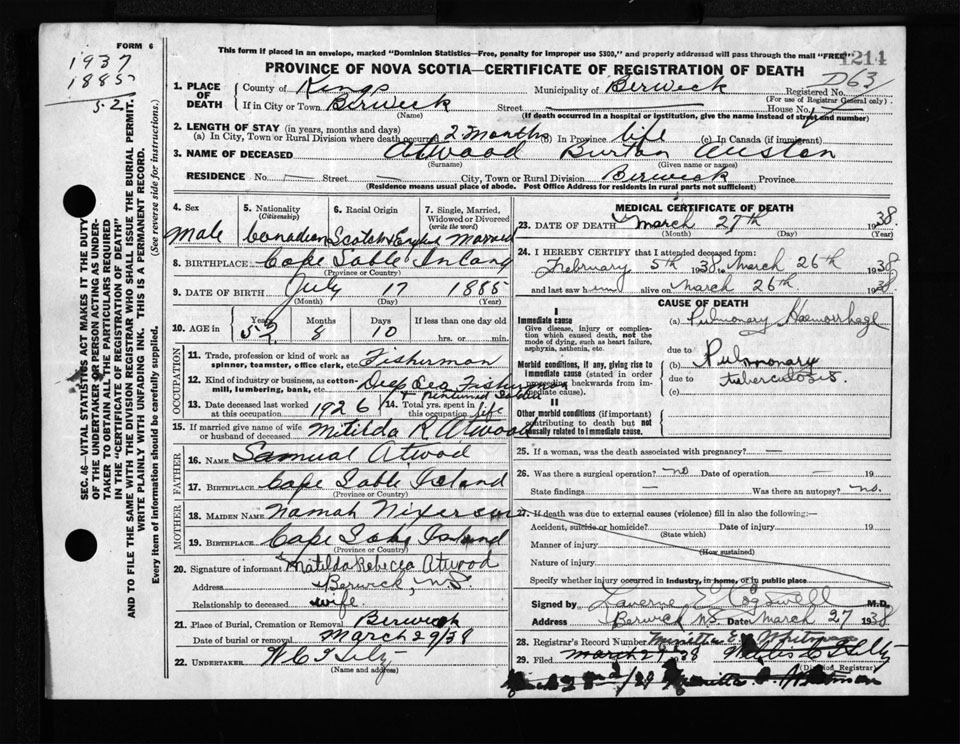 FORM 6
1937
1885
52
This form if placed in an envelope, marked "Dominion Statistics—Free, penalty for improper use $300," and properly addressed will pass through the mail "FREE"
1214
PROVINCE OF NOVA SCOTIA—CERTIFICATE OF REGISTRATION OF DEATH
D63
1. PLACE OF DEATH County of Kings Municipality of Berwick Registered No.
(For use of Registrar General only)
If in City or Town Berwick Street House No.
(Name) (If death occurred in a hospital or institution, give the name instead of street and number)
2. LENGTH OF STAY (in years, months and days)
(a) In City, Town or Rural Division where death occurred 2 Months (b) In Province life (c) In Canada (if immigrant)
3. NAME OF DECEASED Atwood Burton Austen
(Surname) (Given name or names)
RESIDENCE No. — Street — City, Town or Rural Division Berwick Province
(Residence means usual place of abode. Post Office Address for residents in rural parts not sufficient)
4. Sex Male
5. Nationality (Citizenship) Canadian
6. Racial Origin Scotch &
7. Single, Married, Widowed or Divorced (write the word) Married
8. BIRTHPLACE Cape Sable
(Province or Country)
9. DATE OF BIRTH July 17 1885
(Month) (Day) (Year)
10. AGE in Years 52 Months 8 Days 10 If less than one day old
hrs. or min.
OCCUPATION
11. Trade, profession or kind of work as spinner, teamster, office clerk, etc. Fisherman
12. Kind of industry or business, as cotton-mill, lumbering, bank, etc. Deep Sea Fisherman
13. Date deceased last worked at this occupation 1926 14. Total yrs. spent in this occupation life
15. If married give name of wife or husband of deceased Mitilda R Atwood
FATHER
16. NAME Samual Atwood
17. BIRTHPLACE Cape Sable Island
(Province or Country)
MOTHER
18. MAIDEN NAME Namah
19. BIRTHPLACE Cape Sable Island
(Province or Country)
20. Signature of informant Matilda Rebecca Atwood
Address Berwick, N.S.
Relationship to deceased wife
21. Place of Burial, Cremation or Removal Berwick
Date of burial or removal March 29/38
22. UNDERTAKER
(Name and address)
MEDICAL CERTIFICATE OF DEATH
23. DATE OF DEATH March 27th 1938
(Month) (Day) (Year)
24. I HEREBY CERTIFY that I attended deceased from:
February 5th 1938 to March 26th 1938
and last saw him alive on March 26th 1938
CAUSE OF DEATH
I
Immediate cause (a) Pulmonary Haemorrhage
Give disease, injury or complication which caused death, not the mode of dying, such as heart failure, asphyxia, asthenia, etc.
due to
Morbid conditions, if any, giving rise to immediate cause (stated in order proceeding backwards from immediate).
(b) Pulmonary
due to tuberculosis.
(c)
II
Other morbid conditions (if important) contributing to death but not causally related to immediate cause.
25. If a woman, was the death associated with pregnancy? —
26. Was there a surgical operation? no Date of operation — 19
State findings — Was there an autopsy? no.
27. If death was due to external causes (violence) fill in also the following:—
Accident, suicide or homicide? Date of injury 19
(State which)
Manner of injury
(How sustained)
Nature of injury
Specify whether injury occurred in industry, in home, or in public place
Signed by M.D.
Address Berwick N.S. Date March 27 1938
28. Registrar's Record Number
29. Filed March 29 38
(Division Registrar)
SEC. 46—VITAL STATISTICS ACT MAKES IT THE DUTY
OF THE UNDERTAKER OR PERSON ACTING AS UNDER-
TAKER TO OBTAIN ALL THE PARTICULARS REQUIRED
IN THE "CERTIFICATE OF REGISTRATION OF DEATH"
AND TO FILE THE SAME WITH THE DIVISION REGISTRAR WHO SHALL ISSUE THE BURIAL PERMIT.
WRITE PLAINLY WITH UNFADING INK. THIS IS A PERMANENT RECORD.
Every item of information should be carefully supplied. (See reverse side for instructions.)